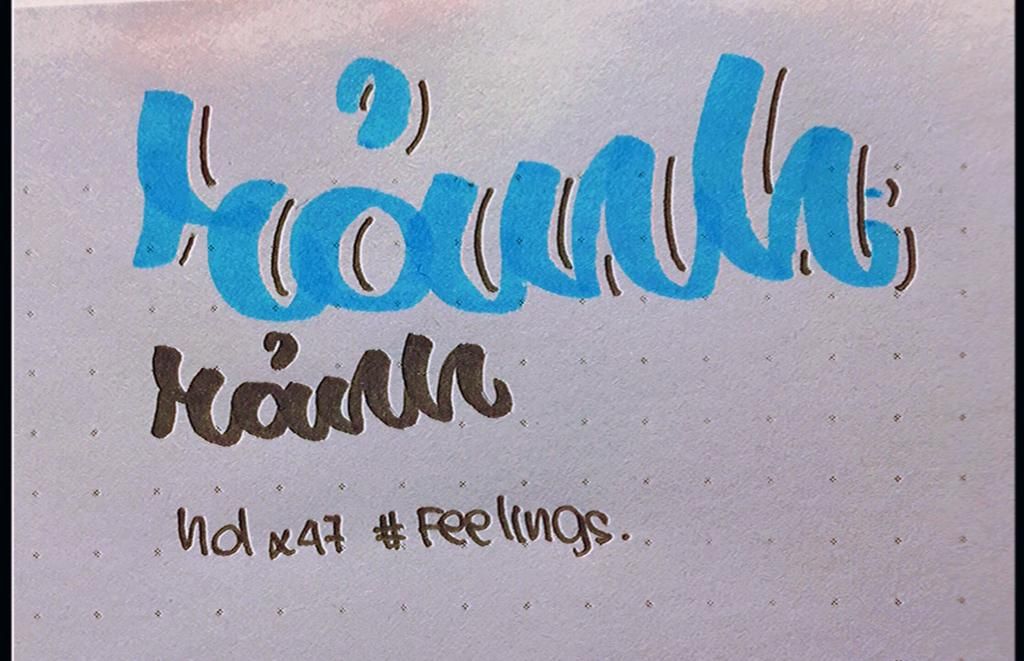 rảnh
rảnh
hd x47 #Feelings.